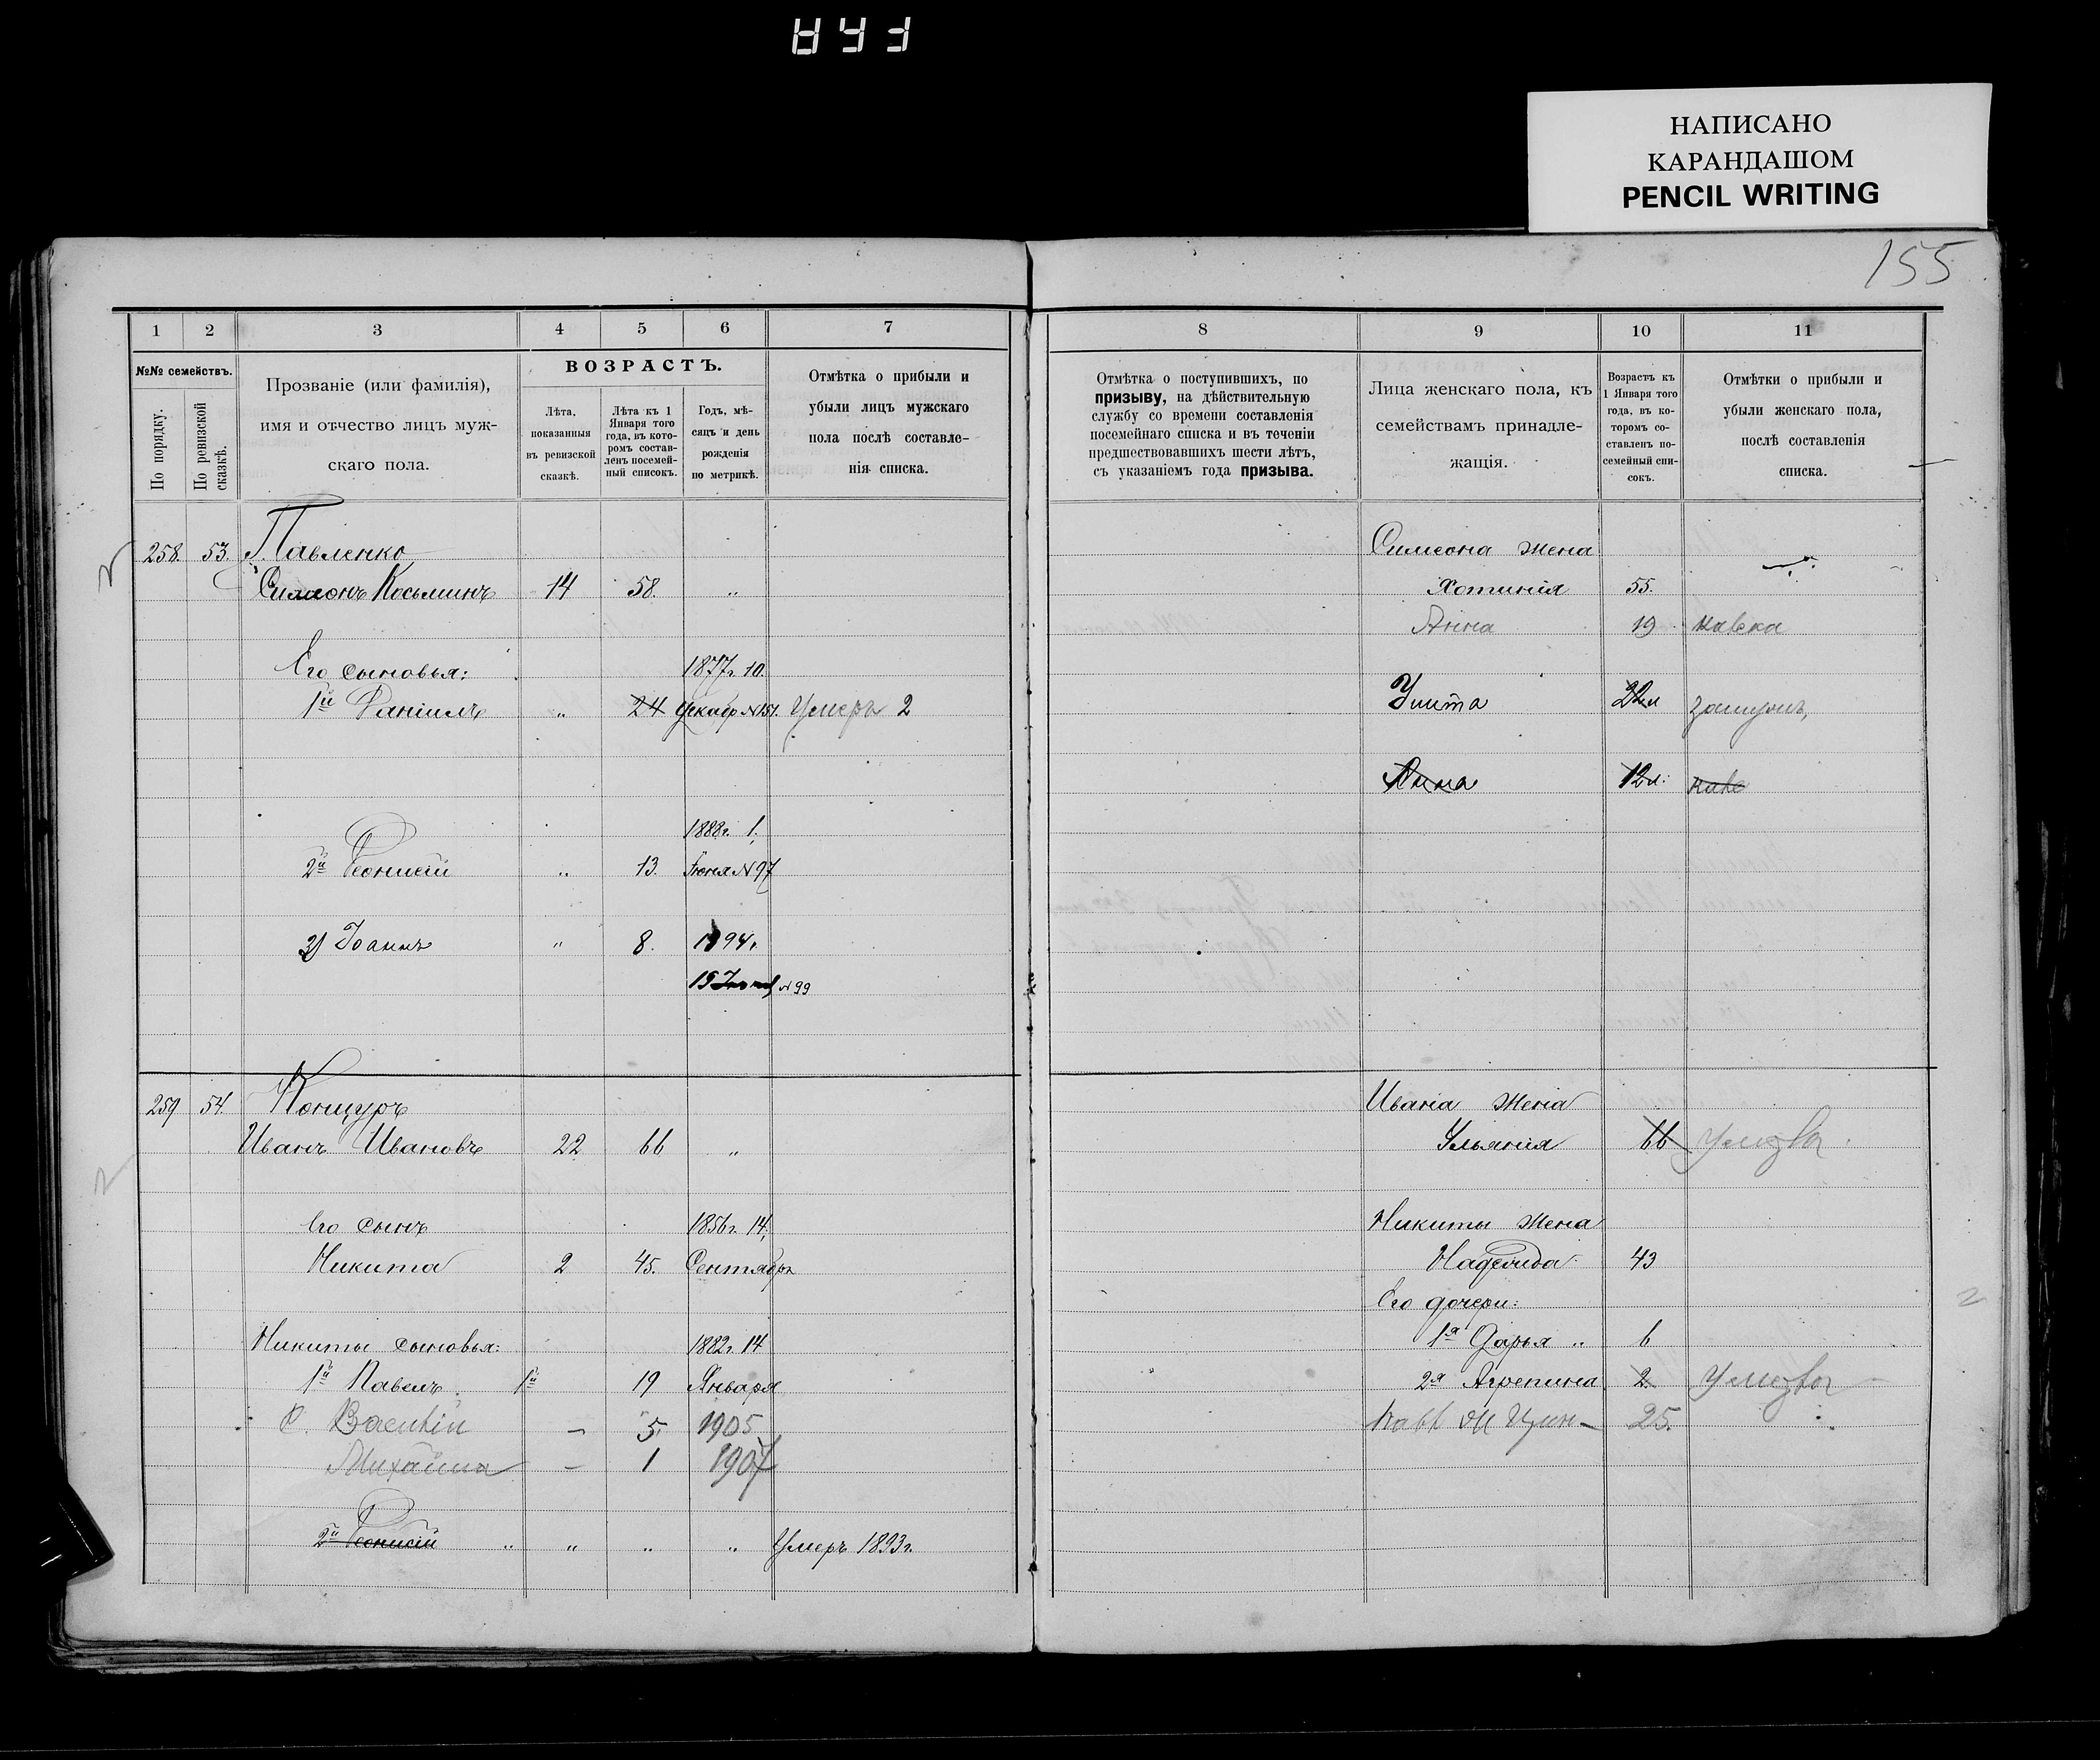 НАПИСАНО
КАРАНДАШОМ
PENCIL WRITING
155
1 2 3 4 5 6 7
№№ семействъ.
По порядку.
По ревизской сказкѣ.
Прозваніе (или фамилія),
имя и отчество лицъ муж-
скаго пола.
ВОЗРАСТЪ.
Лѣта,
показанныя
въ ревизской
сказкѣ.
Лѣта къ 1
Января того
года, въ кото-
ромъ состав-
ленъ посемей-
ный списокъ.
Годъ, мѣ-
сяцъ и день
рожденія
по метрикѣ.
Отмѣтка о прибыли и
убыли лицъ мужскаго
пола послѣ составле-
нія списка.
258. 53. Павленко
Симеонъ Косьминъ 14 58. „
Его сыновья: 1877г. 10.
1й Даніилъ „ 24 Декабр №151. Умеръ 2
1888г. 1.
2й Діонисій „ 13. Іюня №97
3) Іоаннъ „ 8. 1894г.
15 №99
259 54. Концуръ
Иванъ Ивановъ 22 66 „
Его сынъ 1856г. 14.
Никита 2 45. Сентября
Никиты сыновья: 1882г. 14
1й Павелъ 1й 19 Января
Василій — 5. 1905
Михаила — 1 1907
2й Діонисій „ „ „ „ Умеръ 1893г.
8 9 10 11
Отмѣтка о поступившихъ, по
призыву, на дѣйствительную
службу со времени составленія
посемейнаго списка и въ теченіи
предшествовавшихъ шести лѣтъ,
съ указаніемъ года призыва.
Лица женскаго пола, къ
семействамъ принадле-
жащія.
Возрастъ къ
1 Января того
года, въ ко-
торомъ со-
ставленъ по-
семейный спи-
сокъ.
Отмѣтки о прибыли и
убыли женскаго пола,
послѣ составленія
списка.
Симеона жена
Хотинія 55.
Анна 19
22л замужъ,
Анна 12л.
Ивана жена
Ульянія 66 Умерла
Никиты жена
Надежда 43
Его дочери:
1я Дарья „ 6
2я Агрепина 2. Умерла
25.